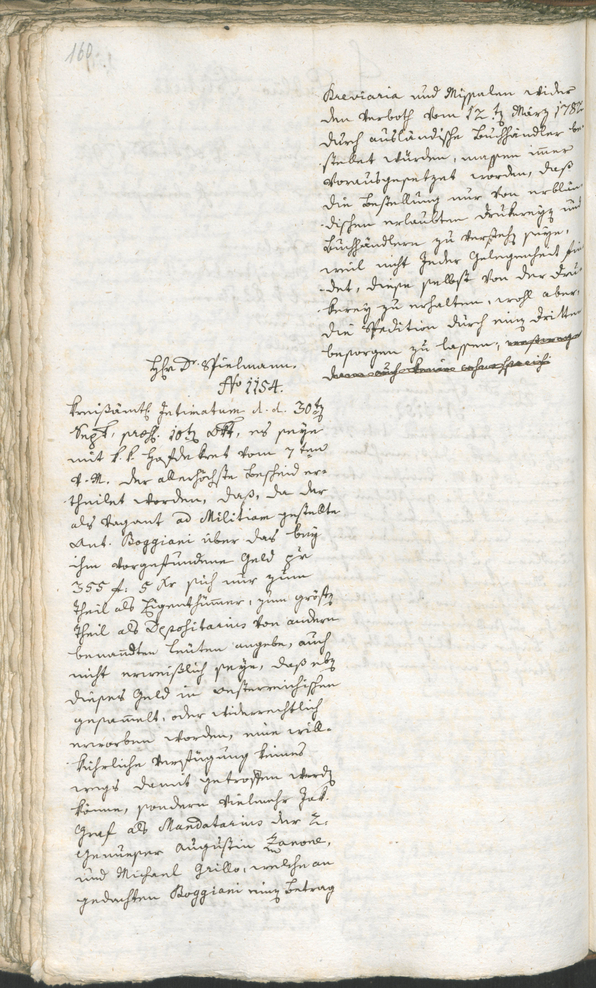 160.
Breviaria und Missalen wider
den Verboth vom 12 t. März 1782
durch ausländische Buchhändler be-
stellet würden, massen immer
vorausgesetzet worden, daß
die Bestellung nur von erblän-
dischen erlaubten Drukereyen und
Buchhändlern zu verstehen seye,
weil nicht jeder Gelegenheit fin-
det, diese selbst von der Dru-
kerey zu erhalten, wohl aber,
die Spedition durch einen Dritten
besorgen zu lassen,
Hr. Dr. Spielmann.
No 1154.
Kreisämtl. Intimatum d. d. 30t.
Sept., praes. 10t. Oct., es seye
mit k. k. Hofdekret vom 7ten
v. M. der allerhöchste Bescheid er-
theilet worden, daß, da der
als Vagant ad Militiam gestellte
Ant. Boggiani über das bey
ihm vorgefundene Geld pr
355 f. 5 Xr sich nur zum
Theil als Eigenthümer, zum größten
Theil als Depositarius von andern
benannten Leuten angebe, auch
nicht erweislich seye, daß eben
dieses Geld in oesterreichischen
gesammelt, oder widerrechtlich
erworben worden, eine will-
kührliche Verfügung keines
wegs damit getroffen werden
könne, sondern vielmehr Jak.
Graf als Mandatarius der 2.
Genueser Augustin Zanone,
und Michael Grillo, welche an
gedachten Boggiani einen Betrag